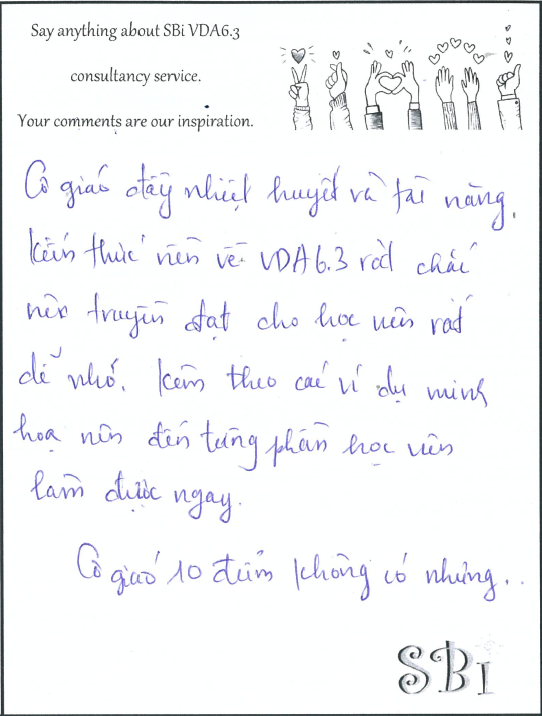 Say anything about SBi VDA6.3
consultancy service.
Your comments are our inspiration.
Cô giáo đầy nhiệt huyết và tài năng.
Kiến thức nền về VDA6.3 rất chắc
nên truyền đạt cho học viên rất
dễ nhớ. Kèm theo các ví dụ minh
hoạ nên đến từng phần học viên
làm được ngay.
Cô giáo 10 điểm không có nhưng..
SBi